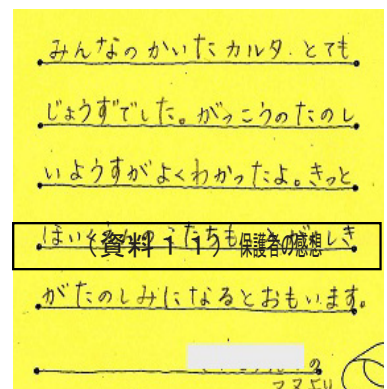 みんなのかいたカルタ、とても
じょうずでした。がっこうのたのし
いようすがよくわかったよ。きっと
ほいくえんのこたちも しき
(資料11) 保護者の感想
がたのしみになるとおもいます。
の
ママより